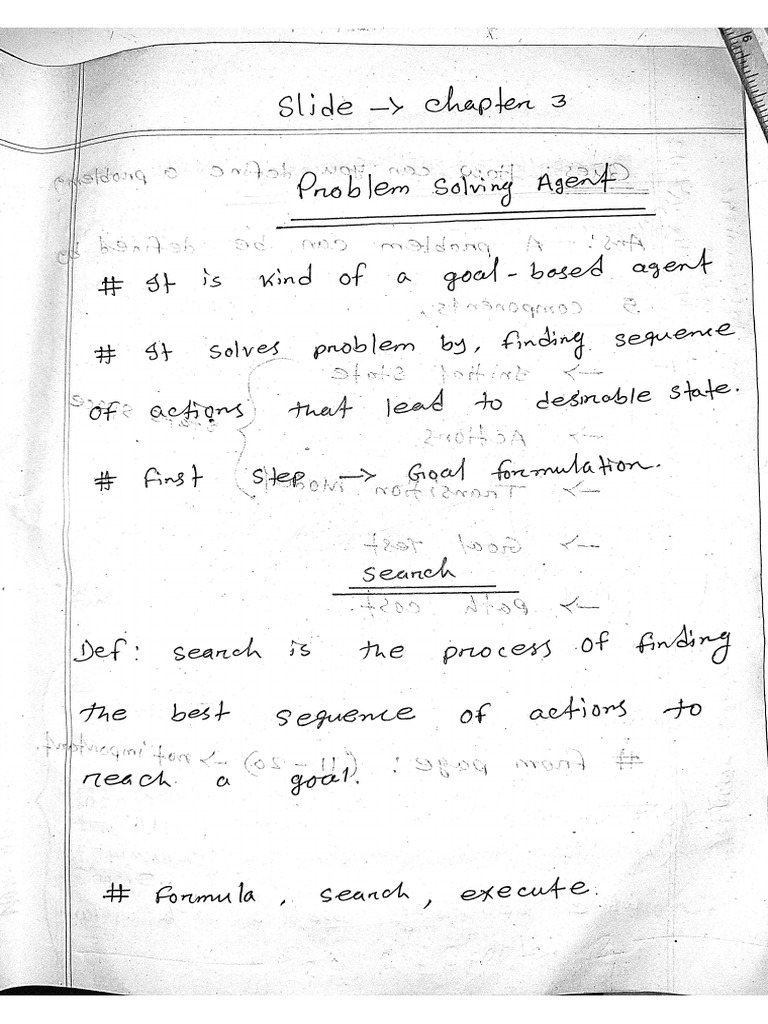 Slide → chapter 3
Problem Solving Agent
# It is kind of a goal-based agent
# It solves problem by, finding sequence
of actions that lead to desirable state.
# first step → Goal formulation.
Search
Def: search is the process of finding
the best sequence of actions to
reach a goal.
# formula, search, execute.